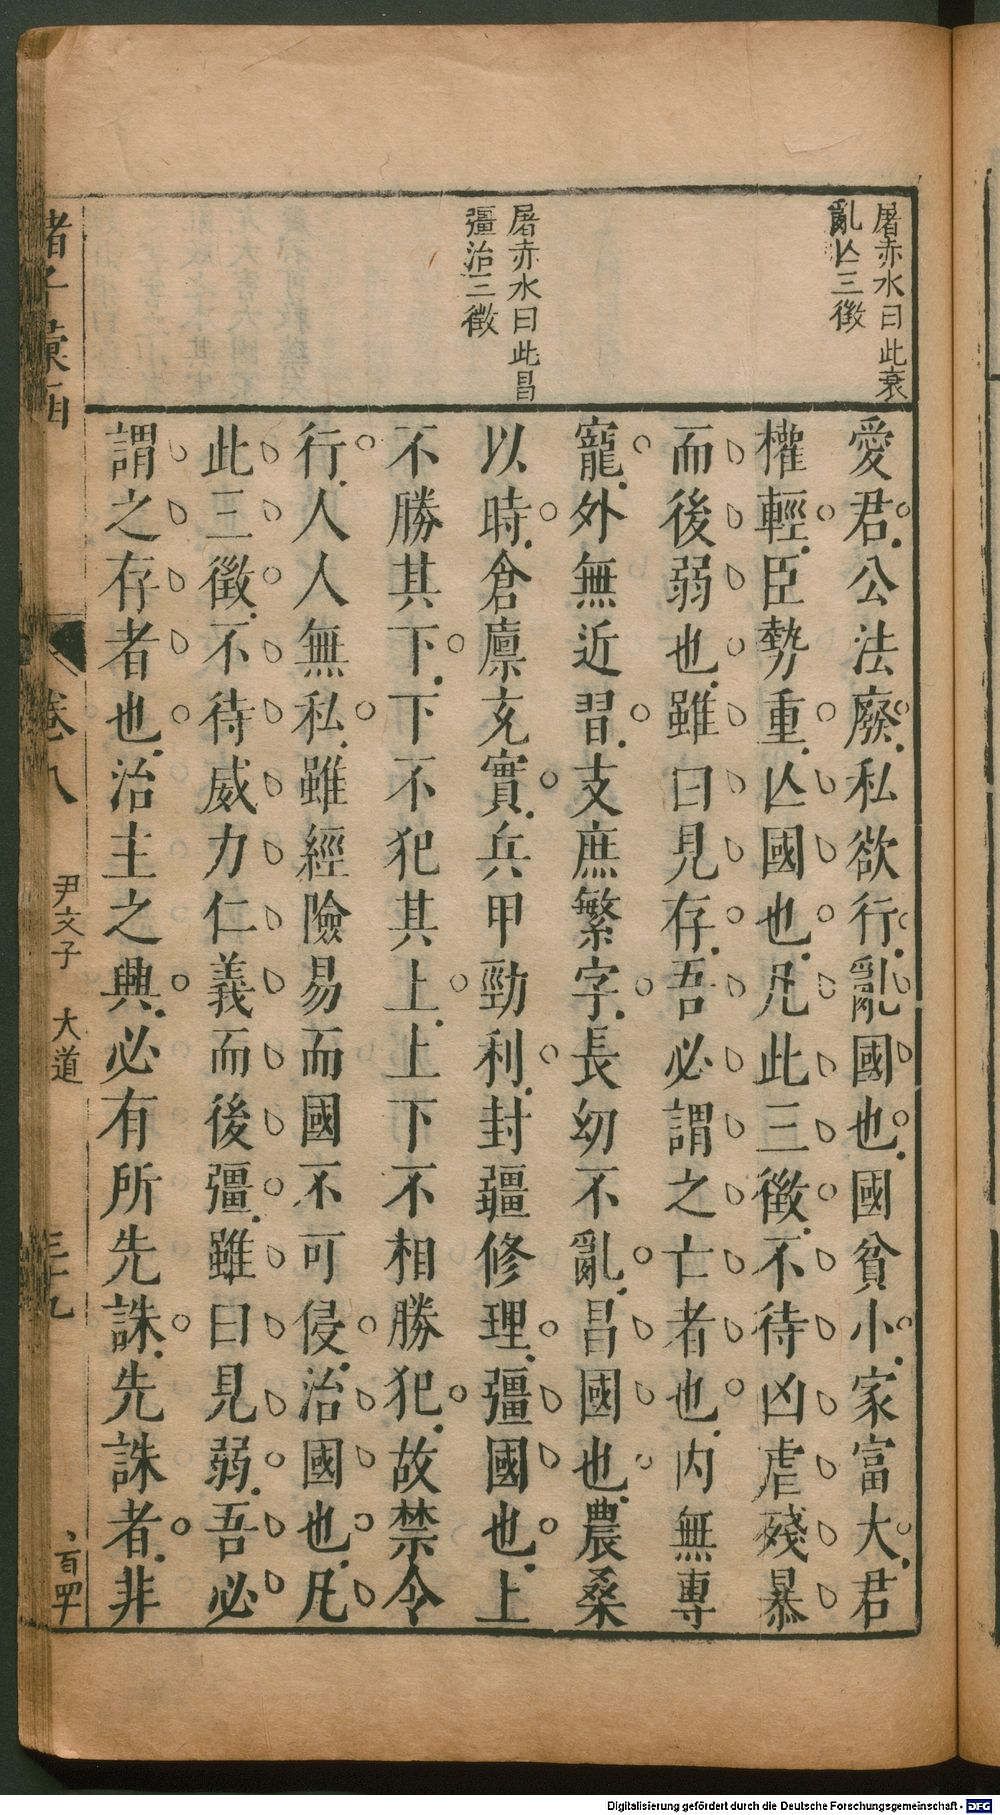 屠赤水曰此衰
亂亾三徵
屠赤水曰此昌
彊治三徵
愛君公法廢私欲行亂國也國貧小家富大君
權輕臣勢重亾國也凡此三徵不待凶虐殘暴
而後弱也雖曰見存吾必謂之亡者也內無專
寵外無近習支庶繁字長幼不亂昌國也農桑
以時倉廩充實兵甲勁利封疆修理彊國也上
不勝其下下不犯其上上下不相勝犯故禁令
行人人無私雖經險易而國不可侵治國也凡
此三徵不待威力仁義而後彊雖曰見弱吾必
謂之存者也治主之興必有所先誅先誅者非
諸子彙函
卷八
尹文子 大道
三十九
Digitalisierung gefördert durch die Deutsche Forschungsgemeinschaft - DFG